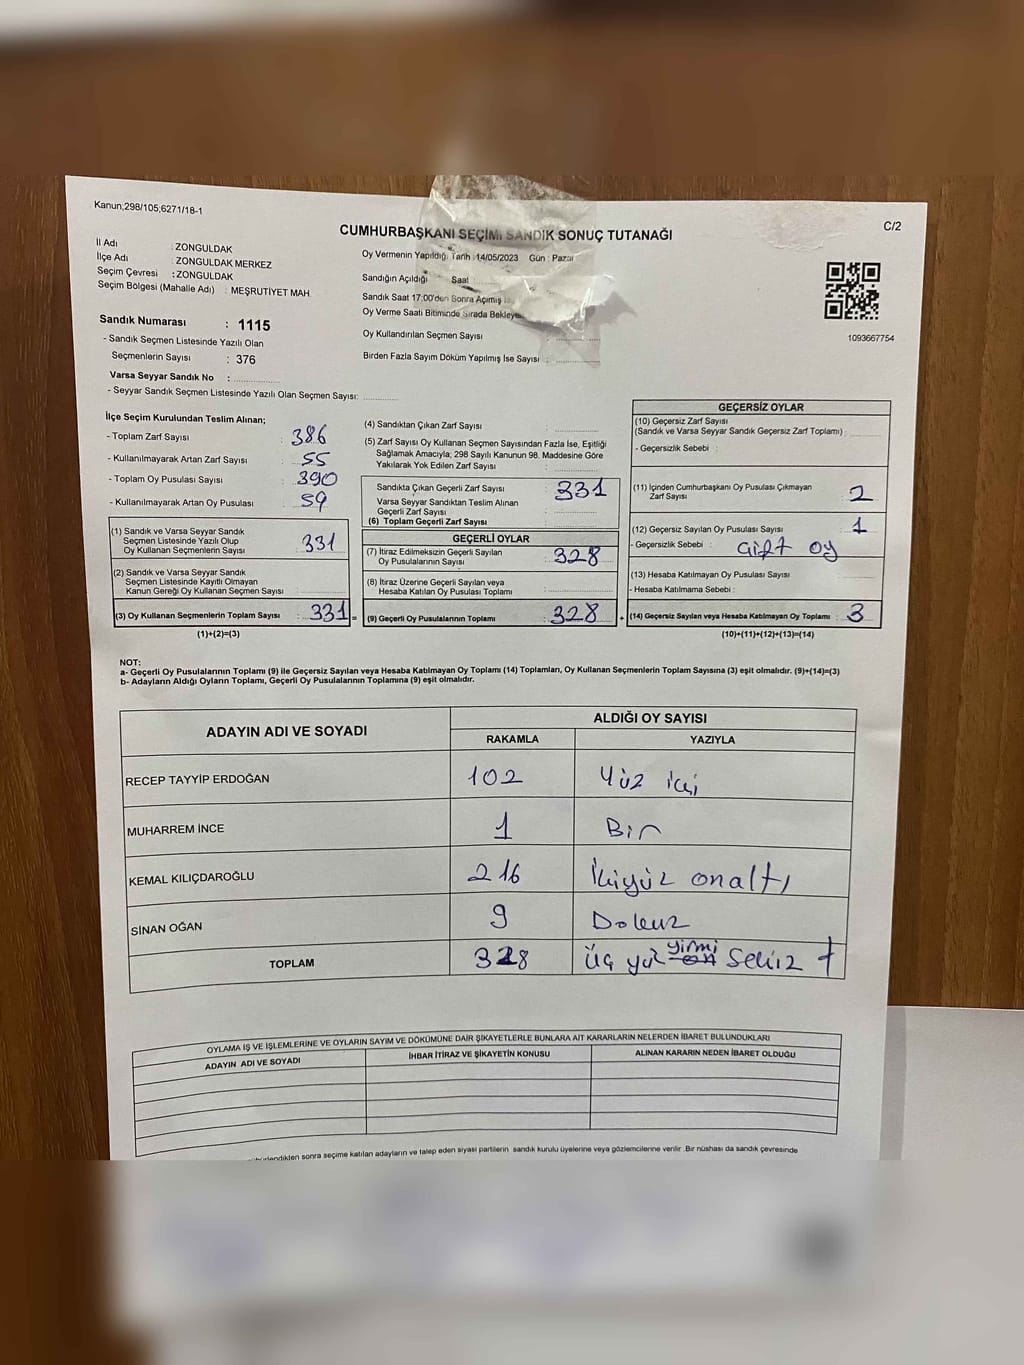 Kanun;298/105;6271/18-1
C/2
CUMHURBAŞKANI SEÇİMİ SANDIK SONUÇ TUTANAĞI
İl Adı : ZONGULDAK
İlçe Adı : ZONGULDAK MERKEZ
Seçim Çevresi : ZONGULDAK
Seçim Bölgesi (Mahalle Adı) : MEŞRUTİYET MAH.
Sandık Numarası : 1115
- Sandık Seçmen Listesinde Yazılı Olan
Seçmenlerin Sayısı : 376
Varsa Seyyar Sandık No :
- Seyyar Sandık Seçmen Listesinde Yazılı Olan Seçmen Sayısı:
Oy Vermenin Yapıldığı Tarih :14/05/2023 Gün : Pazar
Sandığın Açıldığı Saat
Sandık Saat 17:00'den Sonra Açılmış
Oy Verme Saati Bitiminde Sırada
Oy Kullandırılan Seçmen Sayısı :
Birden Fazla Sayım Döküm Yapılmış İse Sayısı :
1093667754
İlçe Seçim Kurulundan Teslim Alınan;
- Toplam Zarf Sayısı : 386
- Kullanılmayarak Artan Zarf Sayısı : 55
- Toplam Oy Pusulası Sayısı : 390
- Kullanılmayarak Artan Oy Pusulası : 59
(1) Sandık ve Varsa Seyyar Sandık
Seçmen Listesinde Yazılı Olup
Oy Kullanan Seçmenlerin Sayısı : 331
(2) Sandık ve Varsa Seyyar Sandık
Seçmen Listesinde Kayıtlı Olmayan
Kanun Gereği Oy Kullanan Seçmen Sayısı :
(3) Oy Kullanan Seçmenlerin Toplam Sayısı : 331 =
(1)+(2)=(3)
(4) Sandıktan Çıkan Zarf Sayısı :
(5) Zarf Sayısı Oy Kullanan Seçmen Sayısından Fazla İse, Eşitliği
Sağlamak Amacıyla; 298 Sayılı Kanunun 98. Maddesine Göre
Yakılarak Yok Edilen Zarf Sayısı :
Sandıkta Çıkan Geçerli Zarf Sayısı : 331
Varsa Seyyar Sandıktan Teslim Alınan
Geçerli Zarf Sayısı :
(6) Toplam Geçerli Zarf Sayısı :
GEÇERLİ OYLAR
(7) İtiraz Edilmeksizin Geçerli Sayılan
Oy Pusulalarının Sayısı : 328
(8) İtiraz Üzerine Geçerli Sayılan veya
Hesaba Katılan Oy Pusulası Toplamı :
(9) Geçerli Oy Pusulalarının Toplamı : 328 +
GEÇERSİZ OYLAR
(10) Geçersiz Zarf Sayısı
(Sandık ve Varsa Seyyar Sandık Geçersiz Zarf Toplamı) :
- Geçersizlik Sebebi :
(11) İçinden Cumhurbaşkanı Oy Pusulası Çıkmayan
Zarf Sayısı : 2
(12) Geçersiz Sayılan Oy Pusulası Sayısı : 1
- Geçersizlik Sebebi : Çift oy
(13) Hesaba Katılmayan Oy Pusulası Sayısı :
- Hesaba Katılmama Sebebi :
(14) Geçersiz Sayılan veya Hesaba Katılmayan Oy Toplamı : 3
(10)+(11)+(12)+(13)=(14)
NOT:
a- Geçerli Oy Pusulalarının Toplamı (9) ile Geçersiz Sayılan veya Hesaba Katılmayan Oy Toplamı (14) Toplamları, Oy Kullanan Seçmenlerin Toplam Sayısına (3) eşit olmalıdır. (9)+(14)=(3)
b- Adayların Aldığı Oyların Toplamı, Geçerli Oy Pusulalarının Toplamına (9) eşit olmalıdır.
ADAYIN ADI VE SOYADI
ALDIĞI OY SAYISI
RAKAMLA YAZIYLA
RECEP TAYYİP ERDOĞAN 102 Yüz iki
MUHARREM İNCE 1 Bir
KEMAL KILIÇDAROĞLU 216 İkiyüz onaltı
SİNAN OĞAN 9 Dokuz
TOPLAM 328 Üç yüz yirmi sekiz
OYLAMA İŞ VE İŞLEMLERİNE VE OYLARIN SAYIM VE DÖKÜMÜNE DAİR ŞİKAYETLERLE BUNLARA AİT KARARLARIN NELERDEN İBARET BULUNDUKLARI
ADAYIN ADI VE SOYADI
İHBAR İTİRAZ VE ŞİKAYETİN KONUSU
ALINAN KARARIN NEDEN İBARET OLDUĞU
sonra seçime katılan adayların ve talep eden siyasi partilerin sandık kurulu üyelerine veya gözlemcilerine verilir .Bir nüshası da sandık çevresinde